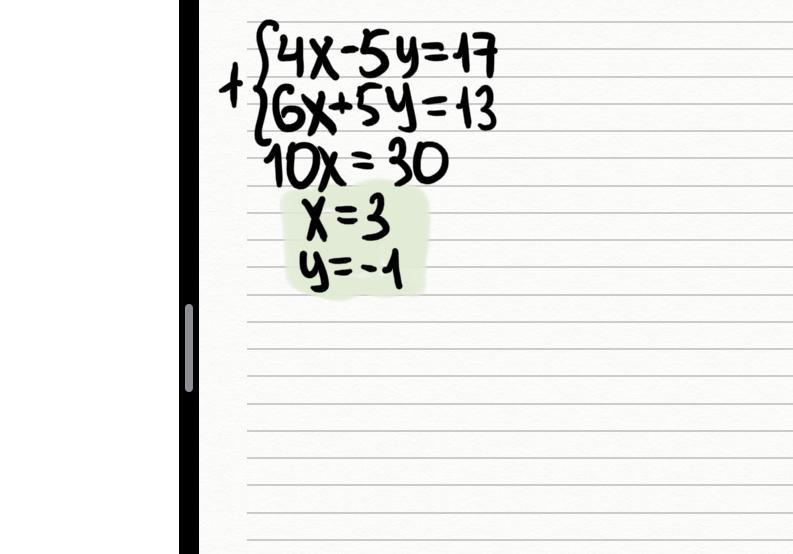 +{4x-5y=17
6x+5y=13
10x=30
x=3
y=-1